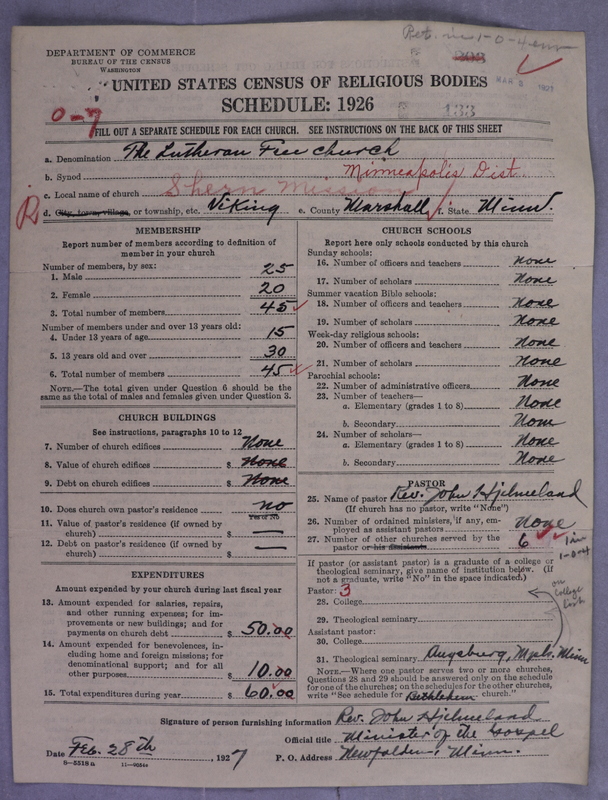 Ret. in 1-0-4 env
DEPARTMENT OF COMMERCE
BUREAU OF THE CENSUS
WASHINGTON
MAR 5 1927
UNITED STATES CENSUS OF RELIGIOUS BODIES
SCHEDULE: 1926
133
0-7
FILL OUT A SEPARATE SCHEDULE FOR EACH CHURCH. SEE INSTRUCTIONS ON THE BACK OF THIS SHEET
a. Denomination The Lutheran Free Church
b. Synod Minneapolis Dist.
c. Local name of church Shern Mission
R d. City, town, village, or township, etc. Viking e. County Marshall f. State Minn.
MEMBERSHIP
Report number of members according to definition of
member in your church
Number of members, by sex:
1. Male 25
2. Female 20
3. Total number of members 45
Number of members under and over 13 years old:
4. Under 13 years of age 15
5. 13 years old and over 30
6. Total number of members 45
NOTE.—The total given under Question 6 should be the
same as the total of males and females given under Question 3.
CHURCH BUILDINGS
See instructions, paragraphs 10 to 12
7. Number of church edifices None
8. Value of church edifices $ None
9. Debt on church edifices $ None
10. Does church own pastor's residence no
Yes or No
11. Value of pastor's residence (if owned by
church) $ —
12. Debt on pastor's residence (if owned by
church) $ —
EXPENDITURES
Amount expended by your church during last fiscal year
13. Amount expended for salaries, repairs,
and other running expenses; for im-
provements or new buildings; and for
payments on church debt $ 50.00
14. Amount expended for benevolences, in-
cluding home and foreign missions; for
denominational support; and for all
other purposes $ 10.00
15. Total expenditures during year $ 60.00
CHURCH SCHOOLS
Report here only schools conducted by this church
Sunday schools:
16. Number of officers and teachers None
17. Number of scholars None
Summer vacation Bible schools:
18. Number of officers and teachers None
19. Number of scholars None
Week-day religious schools:
20. Number of officers and teachers None
21. Number of scholars None
Parochial schools:
22. Number of administrative officers None
23. Number of teachers—
a. Elementary (grades 1 to 8) None
b. Secondary None
24. Number of scholars—
a. Elementary (grades 1 to 8) None
b. Secondary None
PASTOR
25. Name of pastor Rev. John Hjelmeland
(If church has no pastor, write "None")
26. Number of ordained ministers, if any, em-
ployed as assistant pastors None
27. Number of other churches served by the
pastor or his assistants 6 1 in 1-0-4
If pastor (or assistant pastor) is a graduate of a college or
theological seminary, give name of institution below. (If
not a graduate, write "No" in the space indicated.)
Pastor: 3
28. College
on College List
29. Theological seminary
Assistant pastor:
30. College
31. Theological seminary Augsburg, Mpls. Minn
NOTE.—Where one pastor serves two or more churches,
Questions 28 and 29 should be answered only on the schedule
for one of the churches; on the schedules for the other churches,
write "See schedule for Bethlehem church."
Signature of person furnishing information Rev. John Hjelmeland
Official title Minister of the Gospel
Date Feb. 28th, 1927 P. O. Address Newfolden, Minn.
8—5518a 11—9056a